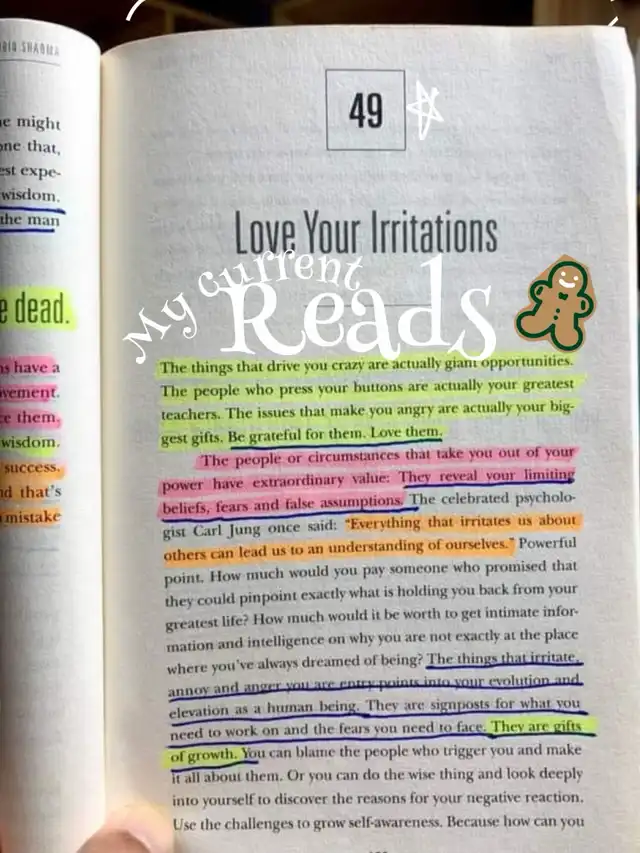 OBIN SHARMA
e might
one that,
est expe-
wisdom.
the man
e dead.
ns have a
vement.
ce them,
wisdom.
success.
nd that's
mistake
49
Love Your Irritations
My current
Reads
The things that drive you crazy are actually giant opportunities.
The people who press your buttons are actually your greatest
teachers. The issues that make you angry are actually your big-
gest gifts. Be grateful for them. Love them.
The people or circumstances that take you out of your
power have extraordinary value: They reveal your limiting
beliefs, fears and false assumptions. The celebrated psycholo-
gist Carl Jung once said: “Everything that irritates us about
others can lead us to an understanding of ourselves.” Powerful
point. How much would you pay someone who promised that
they could pinpoint exactly what is holding you back from your
greatest life? How much would it be worth to get intimate infor-
mation and intelligence on why you are not exactly at the place
where you've always dreamed of being? The things that irritate,
annoy and anger you are entry points into your evolution and
elevation as a human being. They are signposts for what you
need to work on and the fears you need to face. They are gifts
of growth. You can blame the people who trigger you and make
it all about them. Or you can do the wise thing and look deeply
into yourself to discover the reasons for your negative reaction.
Use the challenges to grow self-awareness. Because how can you